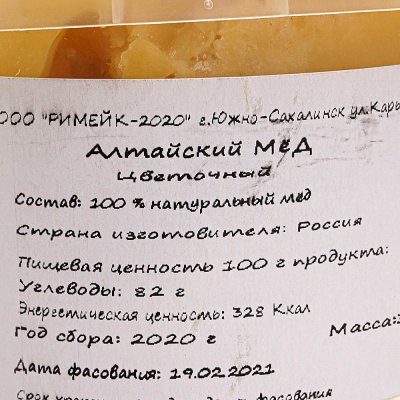 ООО "РИМЕЙК-2020" г.Южно-Сахалинск ул.Кары
Алтайский Мёд
Цветочный
Состав: 100 % натуральный мёд
Страна изготовителя: Россия
Пищевая ценность 100 г продукта:
Углеводы: 82 г
Энергетическая ценность: 328 Ккал
Год сбора: 2020 г
Масса:
Дата фасования: 19.02.2021
Срок фасования